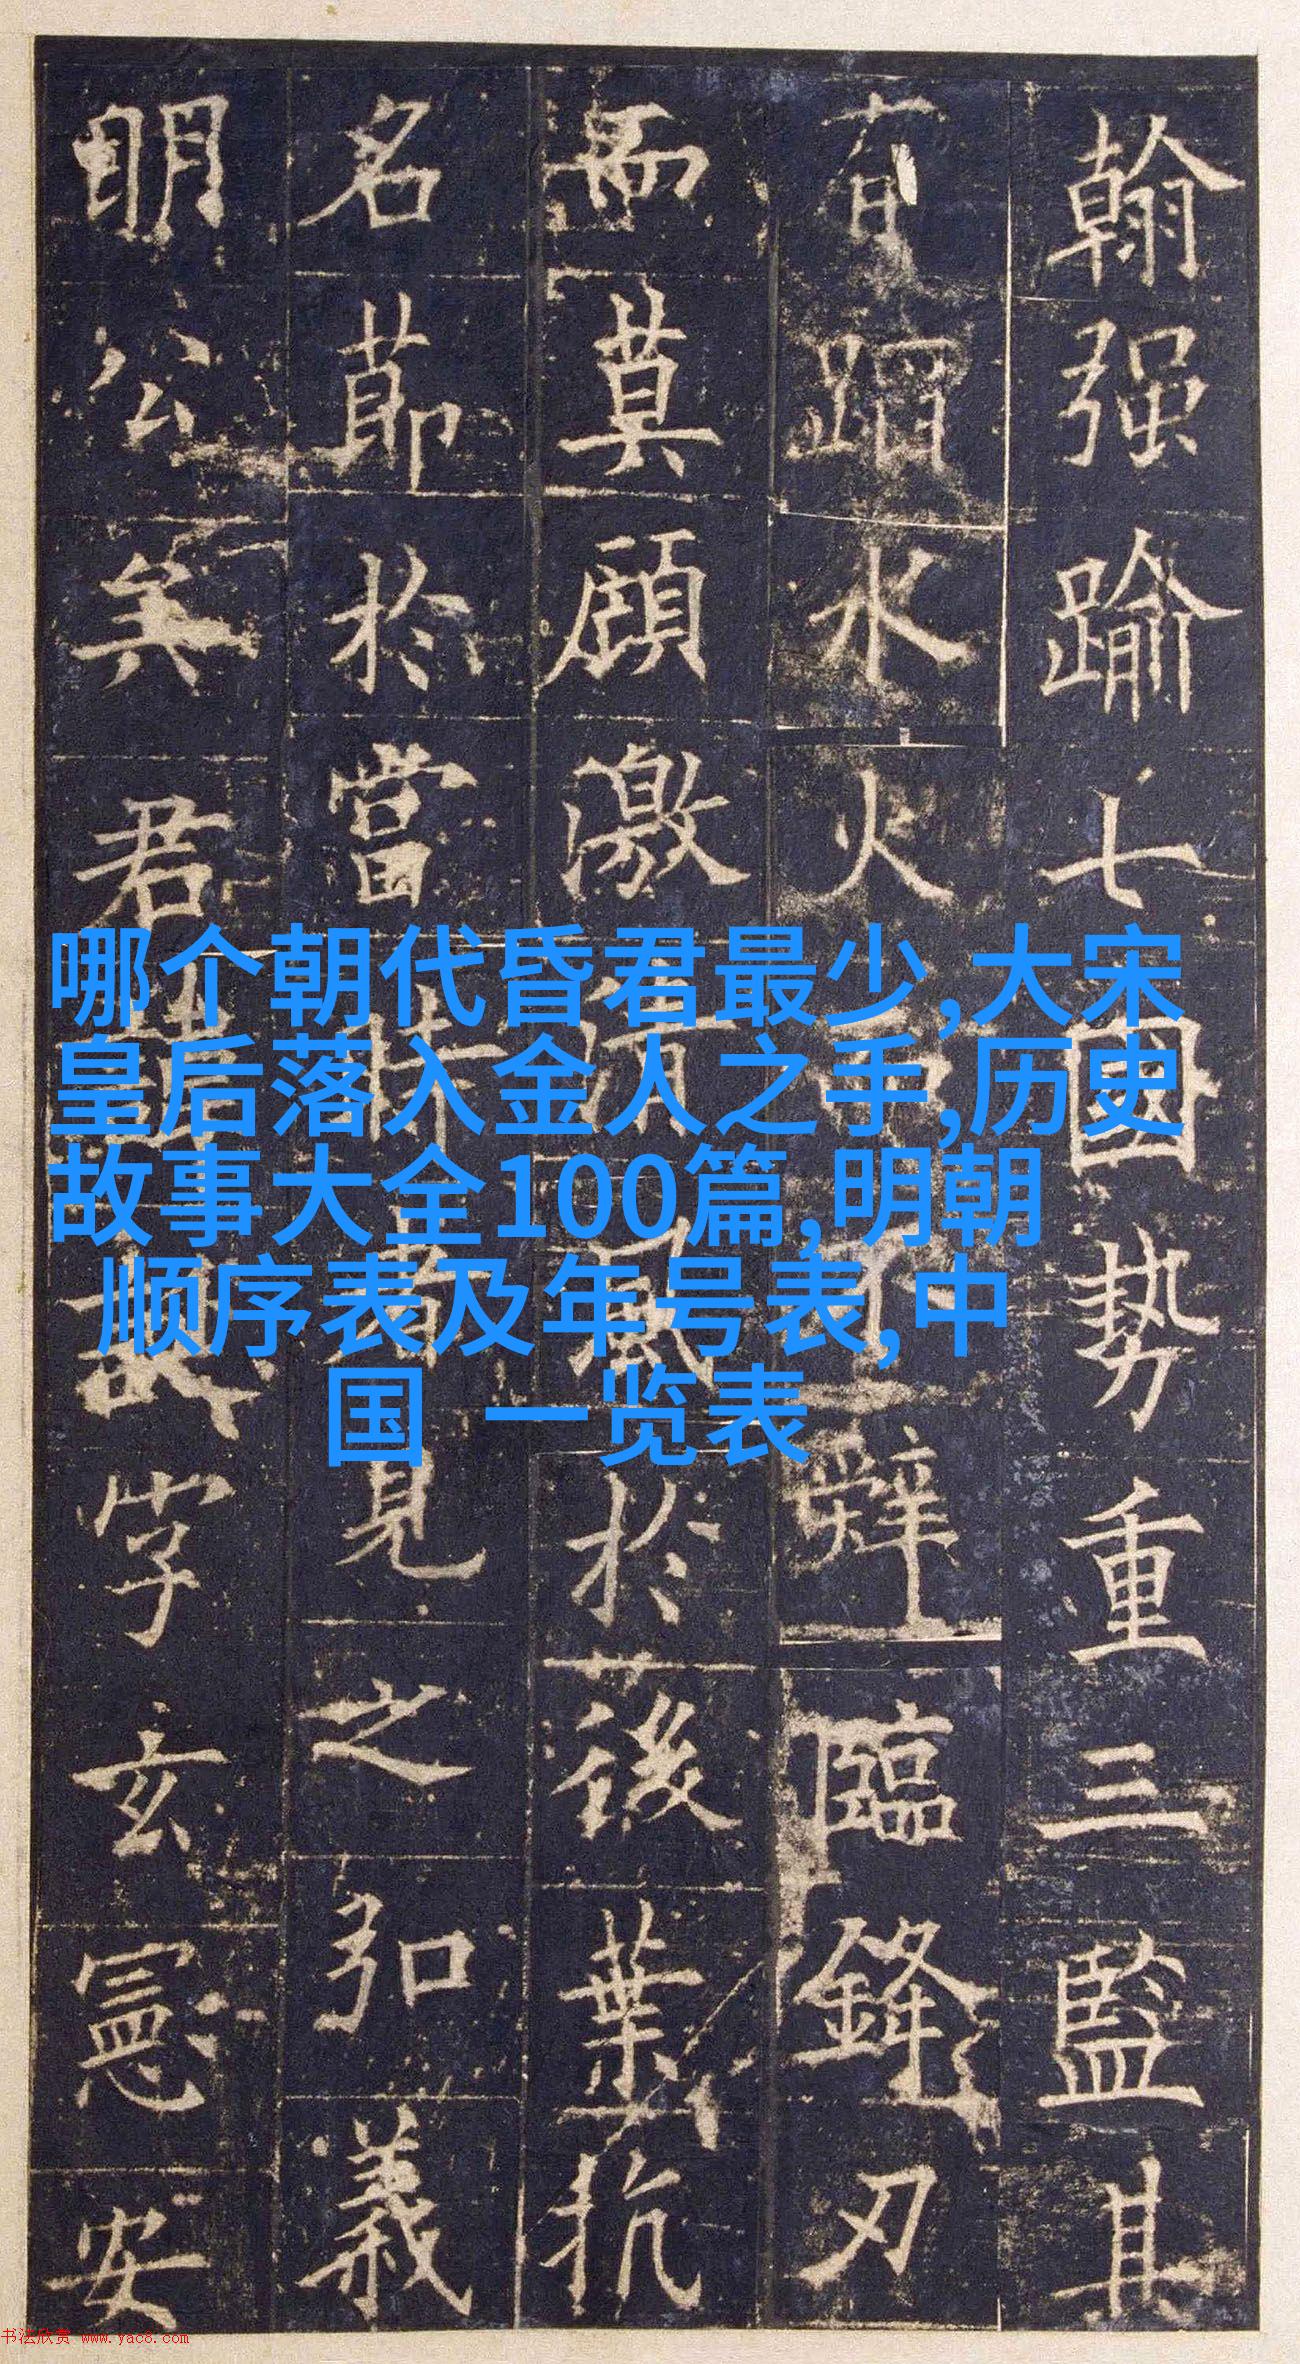 翰强踰七國勢重三監其
有蹈水火而不辭臨鋒刃
而莫顧激清風於後葉抗
名節於當時者見之弘義
明公矣君諱誕字玄憲安
哪个朝代昏君最少,大宋
皇后落入金人之手,历史
故事大全100篇,明朝
顺序表及年号表,中
国 一览表
书法欣赏 www.yac8.com